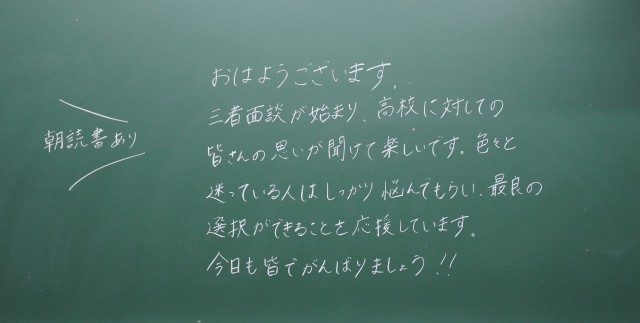 朝読書あり
おはようございます。
三者面談が始まり、高校に対しての
皆さんの思いが聞けて楽しいです。色々と
迷っている人はしっかり悩んでもらい、最良の
選択ができることを応援しています。
今日も皆でがんばりましょう!!